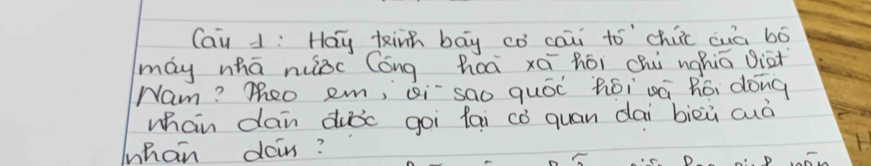 Câu 1: Hãy trình bày cơ cấu tổ chức của bộ
máy nhà nước Cộng hoà xã hội chủ nghĩa Việt
Nam? Theo em, vì sao quốc hội và hội đồng
nhân dân được gọi lại cơ quan đại biểu của
nhân dân?